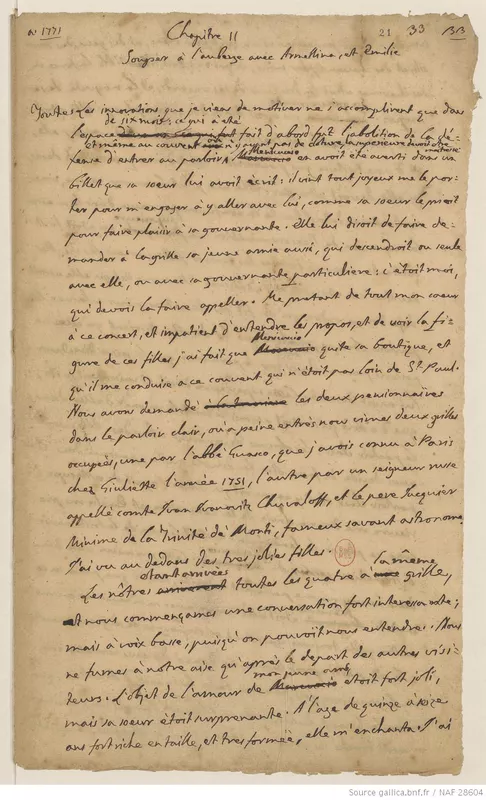 an 1771
Chapitre II
21 33 313
Souper à l'auberge avec Armelline, et Emilie
Toutes les innovations que je viens de motiver ne s'accomplirent que dans
l'espace de six mois; ce qui a été fait d'abord fut l'abolition de la dé-
et même au couvent où n'ayant pas de cloture, la supérieure devoit être maitresse
fense d'entrer au parloir; Menicuccio en avoit été averti dans un
billet que sa soeur lui avoit écrit: il vint tout joyeux me le por-
ter pour m'engager à y aller avec lui, comme sa soeur le prioit
pour faire plaisir à sa gouvernante. Elle lui disoit de faire de-
mander à la grille sa jeune amie aussi, qui descendroit ou seule
avec elle, ou avec sa gouvernante particulière: c'étoit moi,
qui devois la faire appeller. Me pretant de tout mon coeur
à ce concert, et impatient d'entendre les propos, et de voir la fi-
gure de ces filles j'ai fait que Menicuccio quite sa boutique, et
qu'il me conduise a ce couvent qui n'étoit pas loin de St. Paul.
Nous avons demandé les deux pensionnaires
dans le parloir clair, où à peine entrés nous vimes deux grilles
occupées, une par l'abbé Guasco, que j'avois connu à Paris
chez Giuliette l'année 1751, l'autre par un seigneur russe
appellé comte Ivan Ivanovitz Chuvaloff, et le pere Jacquier
Minime de la Trinité de Monti, fameux savant astronome.
J'ai vu au dedans des tres jolies filles.
Les nôtres étant arrivées toutes les quatre à la même grille,
nous commençames une conversation fort interessante;
mais à voix basse, puisqu'on pouvoit nous entendre. Nous
ne fumes à notre aise qu'après le depart des autres visi-
teurs. L'objet de l'amour de mon jeune ami étoit fort joli,
mais sa soeur étoit surprenante. A l'age de quinze à seize
ans fort riche en taille, et tres formée, elle m'enchanta. J'ai
Source gallica.bnf.fr / NAF 28604